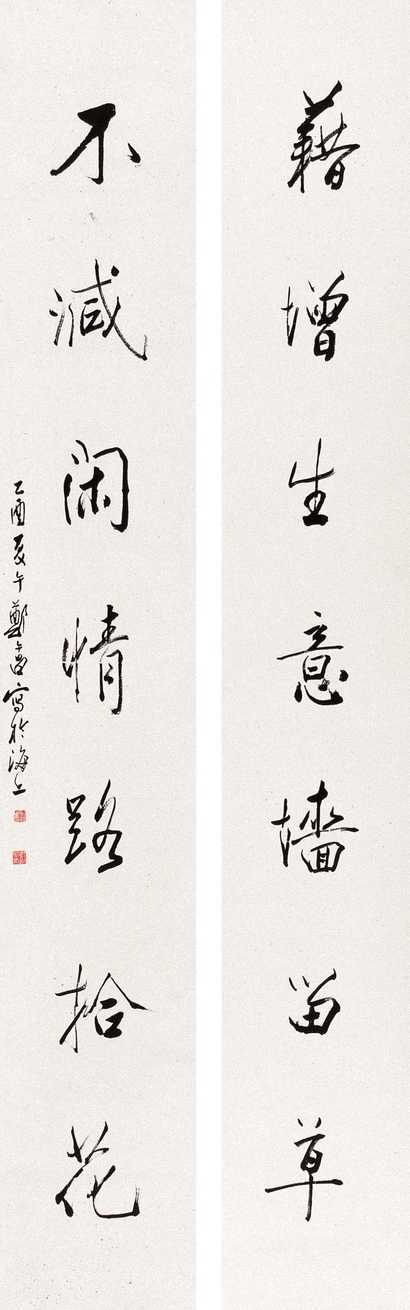 藉增生意墙留草
不減闲情路拾花
乙酉夏午鄭寫於海上